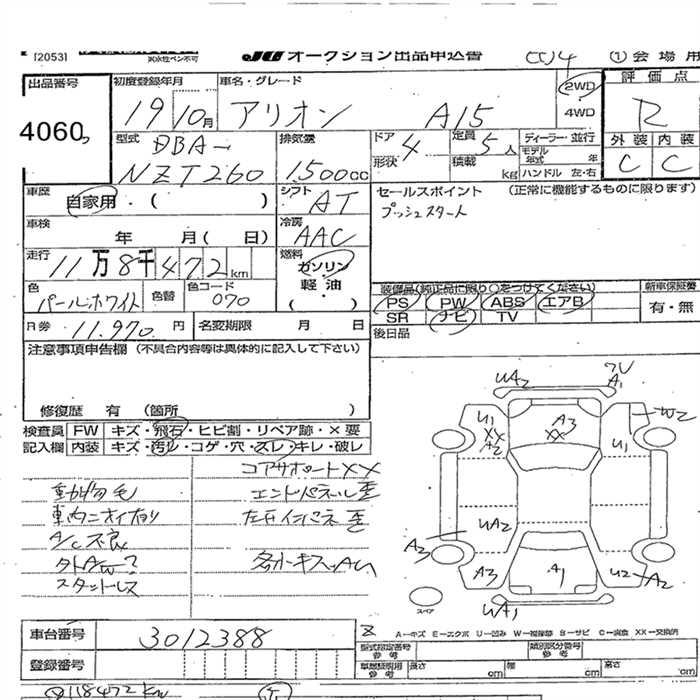 [2053] 気水性ペン不可 JU オークション出品申込書 ① 会場用
出品番号 初度登録年月 車名・グレード 2WD 評価点
4060 19 10月 アリオン A15 4WD R
型式 排気量 ドア 4 定員 5人 ディーラー・並行 外装 内装
DBA- 形状 積載 kg モデル年式 年 C C
NZT260 1,500cc ハンドル 左・右
車歴 自家用・( ) シフト AT セールスポイント (正常に機能するものに限ります)
車検 年 月( 日) 冷房 AAC プッシュスタート
走行 11万8千472km 燃料 ガソリン
軽油
( )
色 パールホワイト 色替 色コード 070 装備品(純正品に限り○をつけてください) 新車保証書
PS PW ABS エアB 有・無
R券 11,970円 名変期限 月 日 SR ナビ TV
注意事項申告欄 (不具合内容等は具体的に記入して下さい) 後日品
修復歴 有 (箇所 )
検査員 FW キズ・飛石・ヒビ割・リペア跡・×要
記入欄 内装 キズ・汚レ・コゲ・穴・スレ・キレ・破レ
コアサポートXX
動物毛 エンドパネル歪
車内ニオイ有り 左右インパネ歪
A/C不良
外AW?
スタットレス
UA2 A1
U1 XX A2 A3 XX U1 W2
UA2
A3 A3 A1 U2 A2
UA1
スペア
A−キズ E−エクボ U−凹み W−補修跡 S−サビ C−腐食 XX−交換済
車台番号 3012388
型式指定番号 参考 類別区分番号 参考
登録番号 車庫証明用 参考 長さ cm 幅 cm 高さ cm
118472km